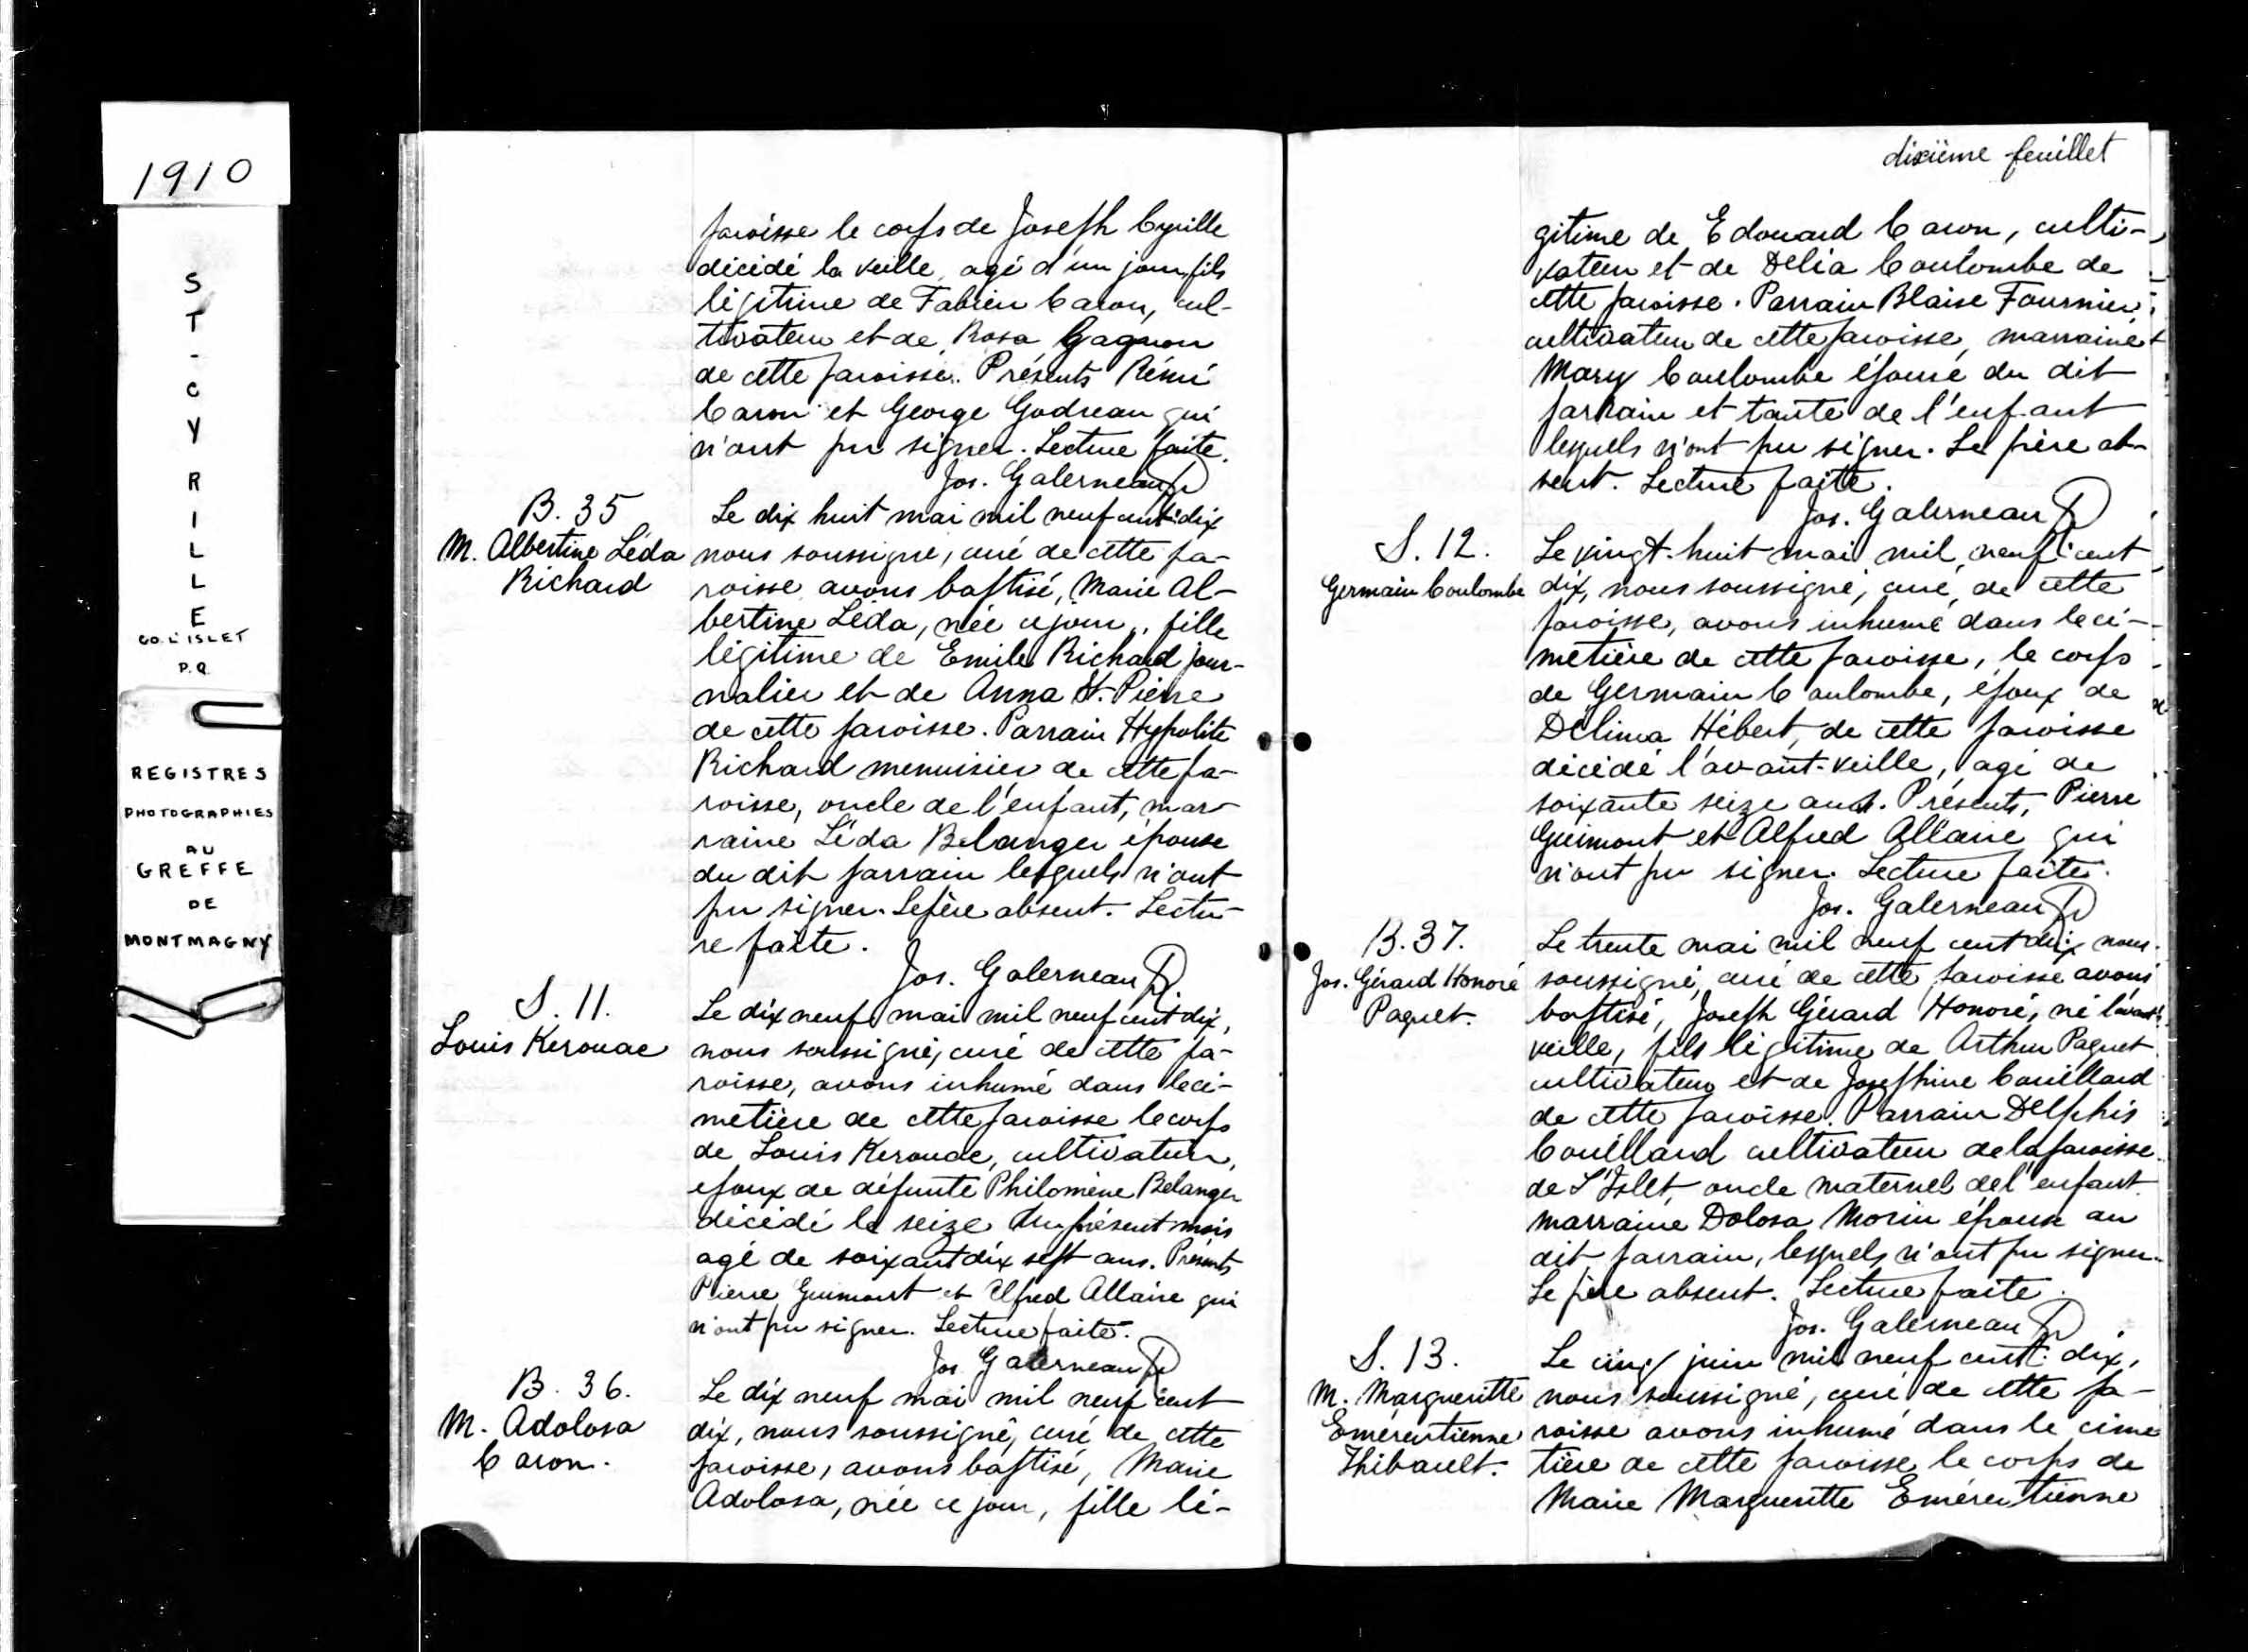 1910
ST-CYRILLE
CO. L'ISLET
P.Q.
REGISTRES
PHOTOGRAPHIES
AU
GREFFE
DE
MONTMAGNY
paroisse le corps de Joseph Cyrille
décédé la veille, agé d'un jour, fils
légitime de Fabien Caron, cul-
tivateur et de Rosa Gagnon
de cette paroisse. Présents Rémi
Caron et George Godreau qui
n'ont pu signer. Lecture faite.
Jos. Galerneau Ptr
B. 35
M. Albertine Léda
Richard
Le dix huit mai mil neuf cent dix
nous soussigné, curé de cette pa-
roisse avons baptisé, Marie Al-
bertine Léda, née ce jour, fille
légitime de Emile Richard jour-
nalier et de Anna St. Pierre
de cette paroisse. Parrain Hypolite
Richard menuisier de cette pa-
roisse, oncle de l'enfant, mar-
raine Léda Belanger épouse
du dit parrain lesquels n'ont
pu signer. Le père absent. Lectu-
re faite.
Jos. Galerneau Ptr
S. 11.
Louis Kerouac
Le dix neuf mai mil neuf cent dix,
nous soussigné, curé de cette pa-
roisse, avons inhumé dans le ci-
metière de cette paroisse le corps
de Louis Kerouac, cultivateur,
epoux de défunte Philomène Belanger
décédé le seize du présent mois
agé de soixant dix sept ans. Présents
Pierre Guimont et Alfred Allaire qui
n'ont pu signer. Lecture faite.
Jos. Galerneau Ptr
B. 36.
M. Adolosa
Caron.
Le dix neuf mai mil neuf cent
dix, nous soussigné, curé de cette
paroisse, avons baptisé, Marie
Adolosa, née ce jour, fille lé-
dixième feuillet
gitime de Edouard Caron, culti-
vateur et de Delia Coulombe de
cette paroisse. Parrain Blaise Fournier,
cultivateur de cette paroisse, marraine
Mary Coulombe épouse du dit
parrain et tante de l'enfant
lesquels n'ont pu signer. Le père ab-
sent. Lecture faite.
Jos. Galerneau Ptr
S. 12.
Germain Coulombe
Le vingt-huit mai mil neuf cent
dix, nous soussigné, curé, de cette
paroisse, avons inhumé dans le ci-
metière de cette paroisse, le corps
de Germain Coulombe, époux de
Délima Hébert, de cette paroisse
décédé l'avant-veille, agé de
soixante seize ans. Présents, Pierre
Guimont et Alfred Allaire qui
n'ont pu signer. Lecture faite.
Jos. Galerneau Ptr
B. 37.
Jos. Gérard Honoré
Paquet.
Le trente mai mil neuf cent dix nous
soussigné, curé de cette paroisse avons
baptisé, Joseph Gérard Honoré, né l'avant
veille, fils légitime de Arthur Paquet
cultivateur et de Josephine Couillard
de cette paroisse. Parrain Delphis
Couillard cultivateur de la paroisse
de L'Islet, oncle maternel de l'enfant
marraine Dolosa Morin épouse du
dit parrain, lesquels n'ont pu signer.
Le père absent. Lecture faite.
Jos. Galerneau Ptr
S. 13.
M. Margueritte
Emérentienne
Thibault.
Le cinq juin mil neuf cent dix,
nous soussigné, curé de cette pa-
roisse avons inhumé dans le cime
tière de cette paroisse le corps de
Marie Margueritte Emérentienne